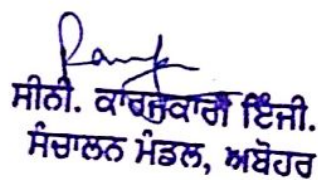 ਸੀਨੀ. ਕਾਰਜਕਾਰੀ ਇੰਜੀ.
ਸੰਚਾਲਨ ਮੰਡਲ, ਅਬੋਹਰ